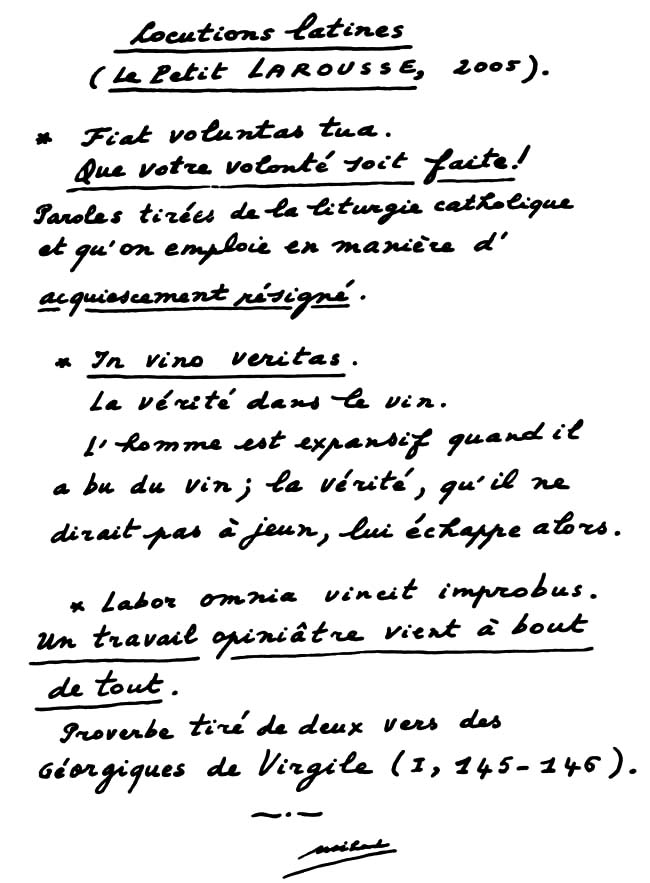 Locutions latines
(Le Petit LAROUSSE, 2005).
* Fiat voluntas tua.
Que votre volonté soit faite!
Paroles tirées de la liturgie catholique
et qu'on emploie en manière d'
acquiescement résigné.
* In vino veritas.
La vérité dans le vin.
L'homme est expansif quand il
a bu du vin; la vérité, qu'il ne
dirait pas à jeun, lui échappe alors.
* Labor omnia vincit improbus.
Un travail opiniâtre vient à bout
de tout.
Proverbe tiré de deux vers des
Géorgiques de Virgile (I, 145-146).